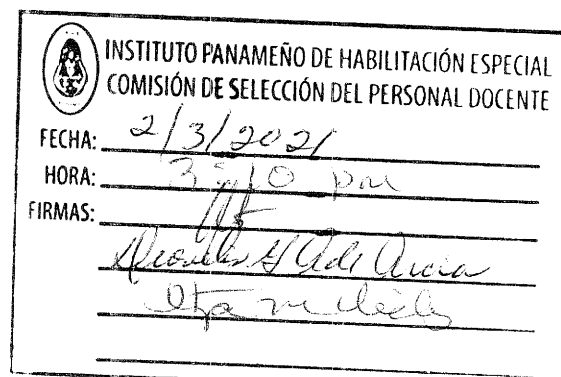 INSTITUTO PANAMEÑO DE HABILITACIÓN ESPECIAL
COMISIÓN DE SELECCIÓN DEL PERSONAL DOCENTE
FECHA: 2/3/2021
HORA: 3:10 pm
FIRMAS: